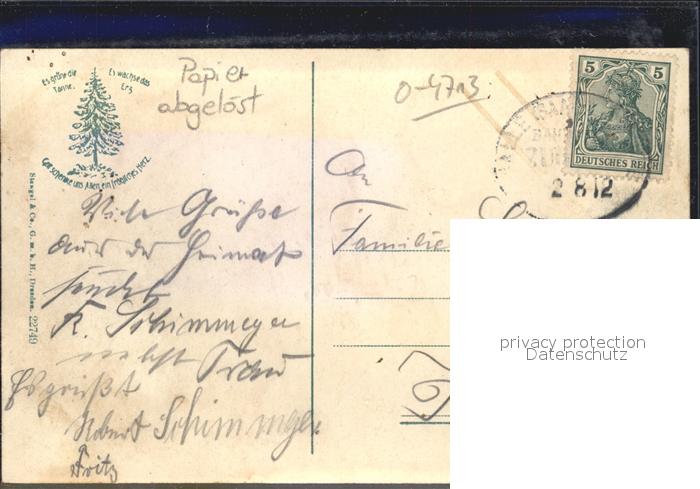 Es grüne die
Tanne,
Es wachse das
Erz,
Gott schenke uns Allen ein fröhliches Herz.
Papier
abgelöst
0-4713
5 5
DEUTSCHES REICH
2 8 12
Stengel & Co., G. m. b. H., Dresden. 22749
Viele Grüße
aus der Heimat
sendet
K. Schimmeyer
nebst Frau
Es grüßt
Robert Schimmeyer
Fritz
An
Familie
privacy protection
Datenschutz